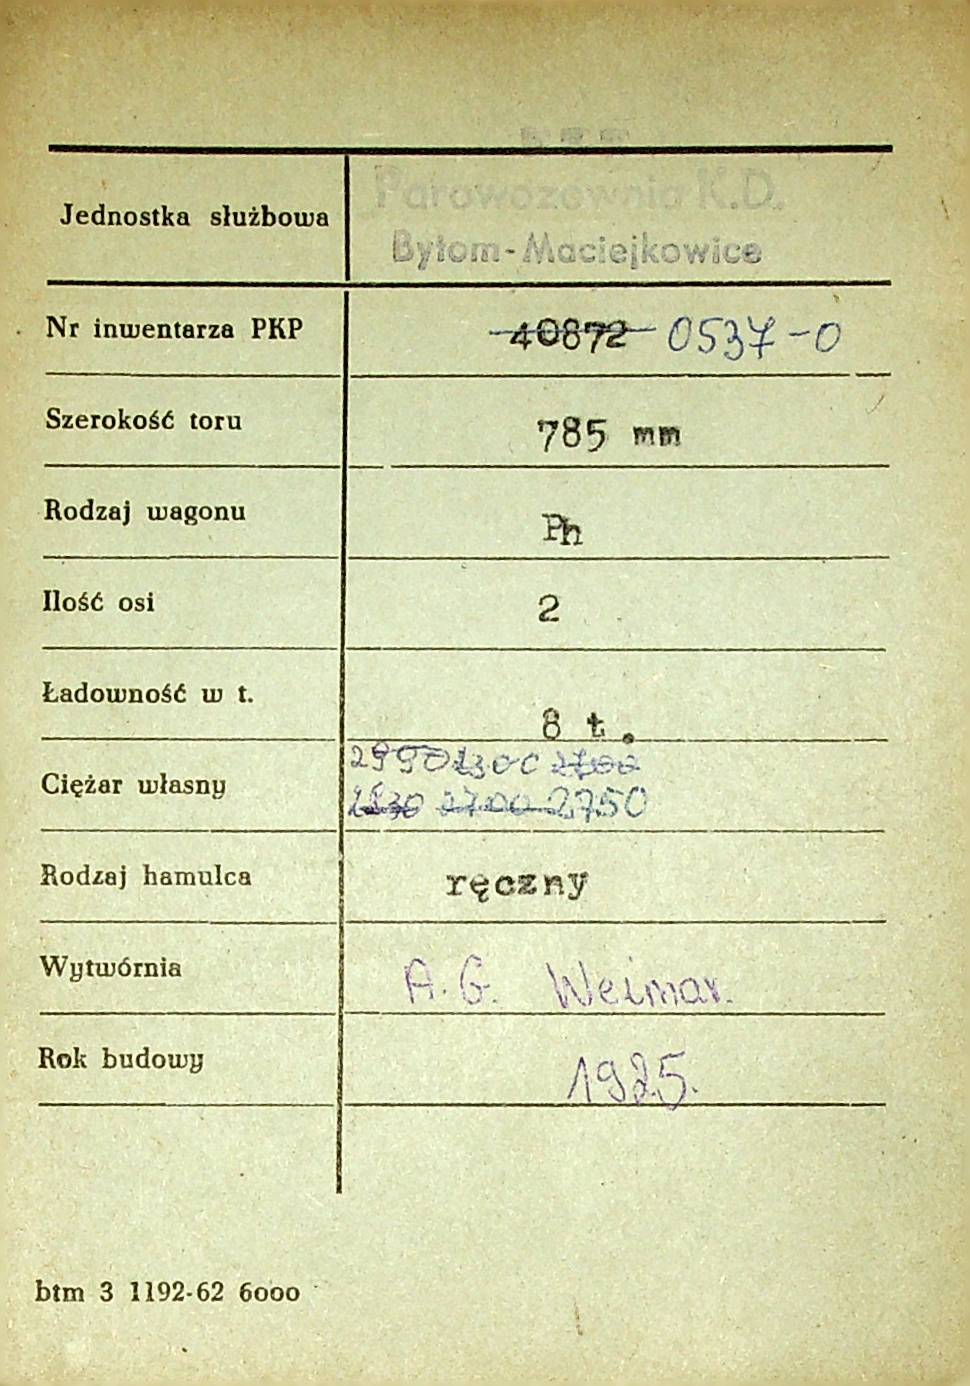 Jednostka służbowa
Parowozownia K.D.
Bytom-Maciejkowice
Nr inwentarza PKP 40872 0537-0
Szerokość toru 785 mm
Rodzaj wagonu Ph
Ilość osi 2
Ładowność w t. 8 t.
2990 2300 2700
Ciężar własny 2700 2750
Rodzaj hamulca ręczny
Wytwórnia A.G. Weimar.
Rok budowy 1925.
btm 3 1192-62 6000